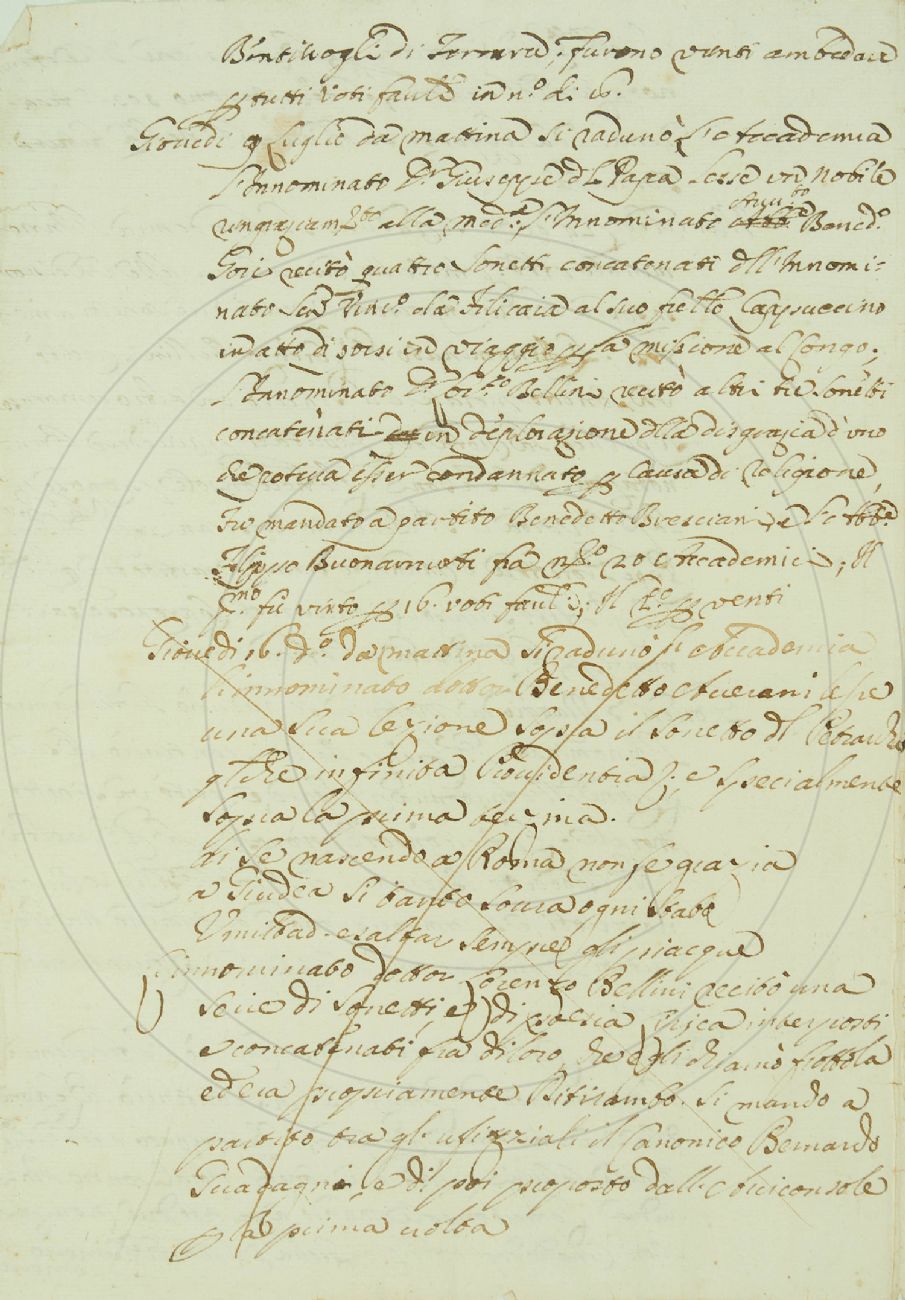 Bentivogli di Ferrara, furono vinti ambedue
p tutti voti fav.li in n.o di 16.
Giovedì 9 Luglio da mattina si radunò l'Accademia
l'Innominato D.r Giuseppe del Papa lesse un nobile
ringraziam.to alla med.a, l'Innominato Bened.o
Gori recitò quattro sonetti concatenati dell'Innomi=
nato Sen.r Vinc.o da Filicaia al suo fratello Cappuccino
in atto di porsi in viaggio p la missione al Congo,
l'Innominato D.r Bellini recitò altri tre sonetti
concatenati in deplorazione della disgrazia d'uno
che poteva esser condannato p causa di religione,
Fu mandato a partito Benedetto Bresciani, e l'Abb.e
Filippo Buonarruoti fra n.o 20 Accademici; Il
p.mo fù vinto p 16. voti fav.li, Il 2.o p venti
Giovedì 16. d.o da mattina si radunò l'Accademia
l'innominato dottor Benedetto Averani lesse
una sua lezione sopra il sonetto del Petrarcha
q che infinita Providentia &; e specialmente
sopra la prima terzina.
di se nascendo a Roma non fe grazia
a Giudea si tanto sovra ogni stato
Umiltad esaltar sempre gli piacque
l'innominato dottor Lorenzo Bellini recitò una
serie di sonetti, e di poesia lirica interposti
e concatenati fra di loro, che egli chiamò frottola
ed era propriamente Ditirambo. Si mandò a
partito tra gl'ufizziali il Canonico Bernardo
Guadagni, e di poi proposto dall'Arciconsole
p la prima volta